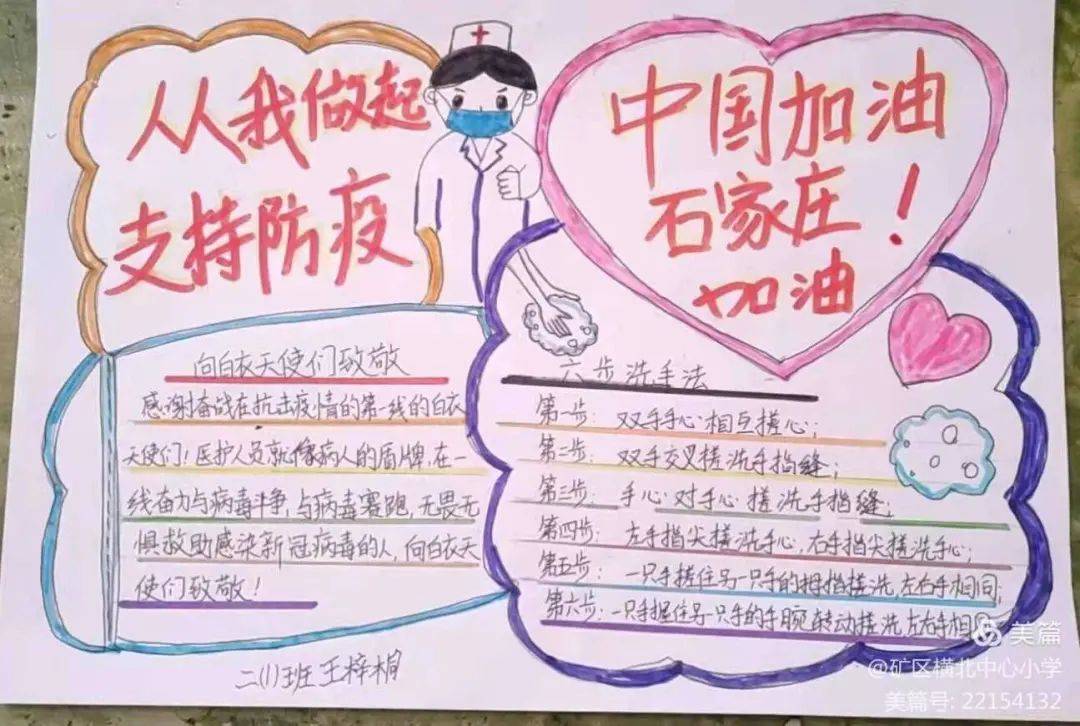 从人我做起
支持防疫
中国加油
石家庄！
加油
向白衣天使们致敬
感谢奋战在抗击疫情的第一线的白衣
天使们！医护人员就像病人的盾牌，在一
线奋力与病毒斗争，与病毒赛跑，无畏无
惧救助感染新冠病毒的人，向白衣天
使们致敬！
六步洗手法
第一步：双手手心相互搓心；
第二步：双手交叉搓洗手指缝；
第三步：手心对手心搓洗手指缝；
第四步：左手指尖搓洗手心，右手指尖搓洗手心；
第五步：一只手搓住另一只手的拇指搓洗，左右手相同；
第六步：一只手握住另一只手的手腕转动搓洗左右手相
二（1）班王梓桐
美篇
@矿区横北中心小学
美篇号: 22154132